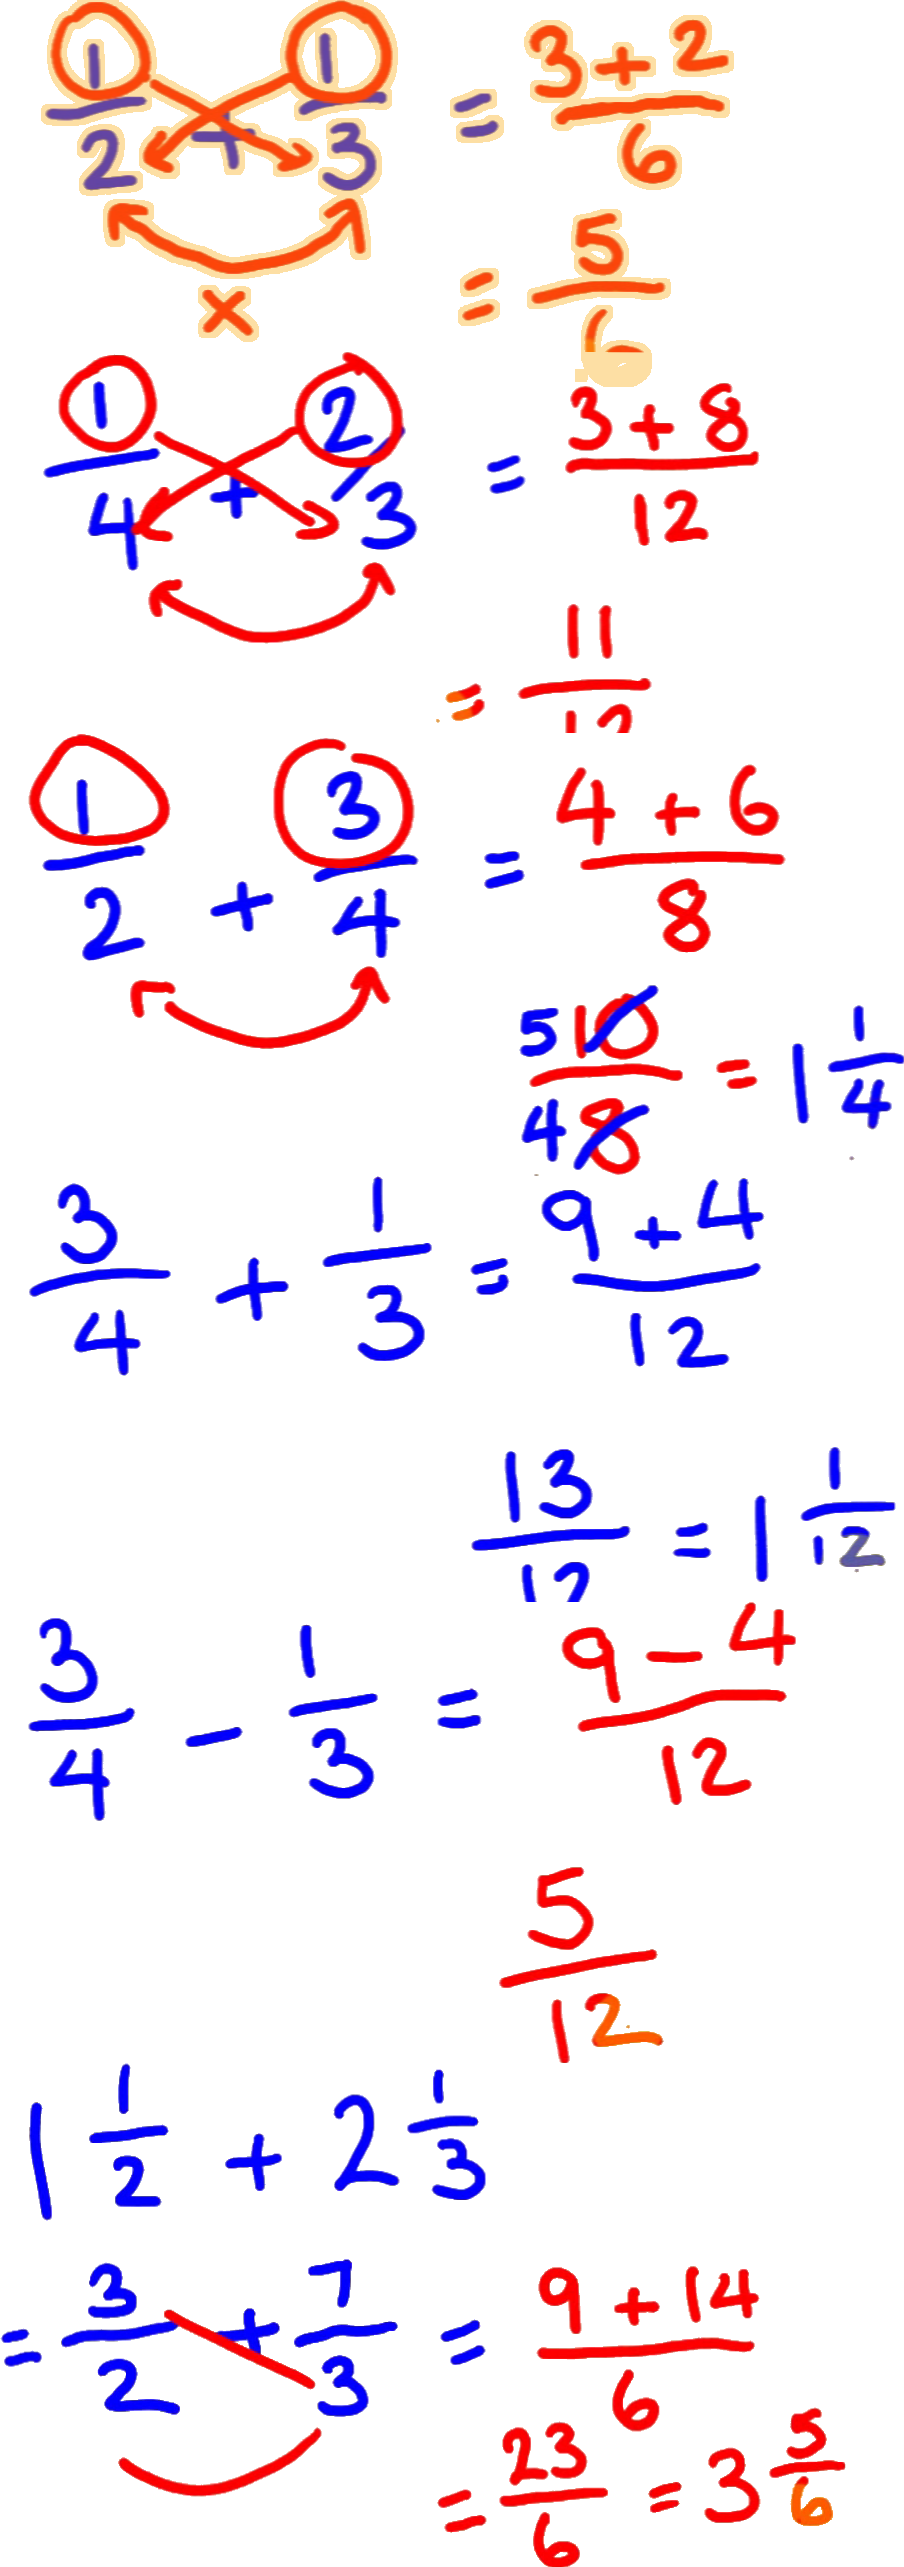 1/2 + 1/3 = 3+2/6
×
= 5/6
1/4 + 2/3 = 3+8/12
= 11/12
1/2 + 3/4 = 4+6/8
5 10/4 8 = 1 1/4
3/4 + 1/3 = 9+4/12
13/12 = 1 1/12
3/4 - 1/3 = 9-4/12
5/12
1 1/2 + 2 1/3
= 3/2 + 7/3 = 9+14/6
= 23/6 = 3 5/6